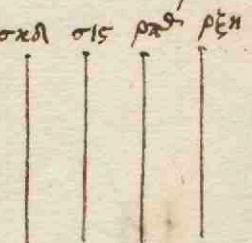 σκδ σιϛ ρπθ ρξη